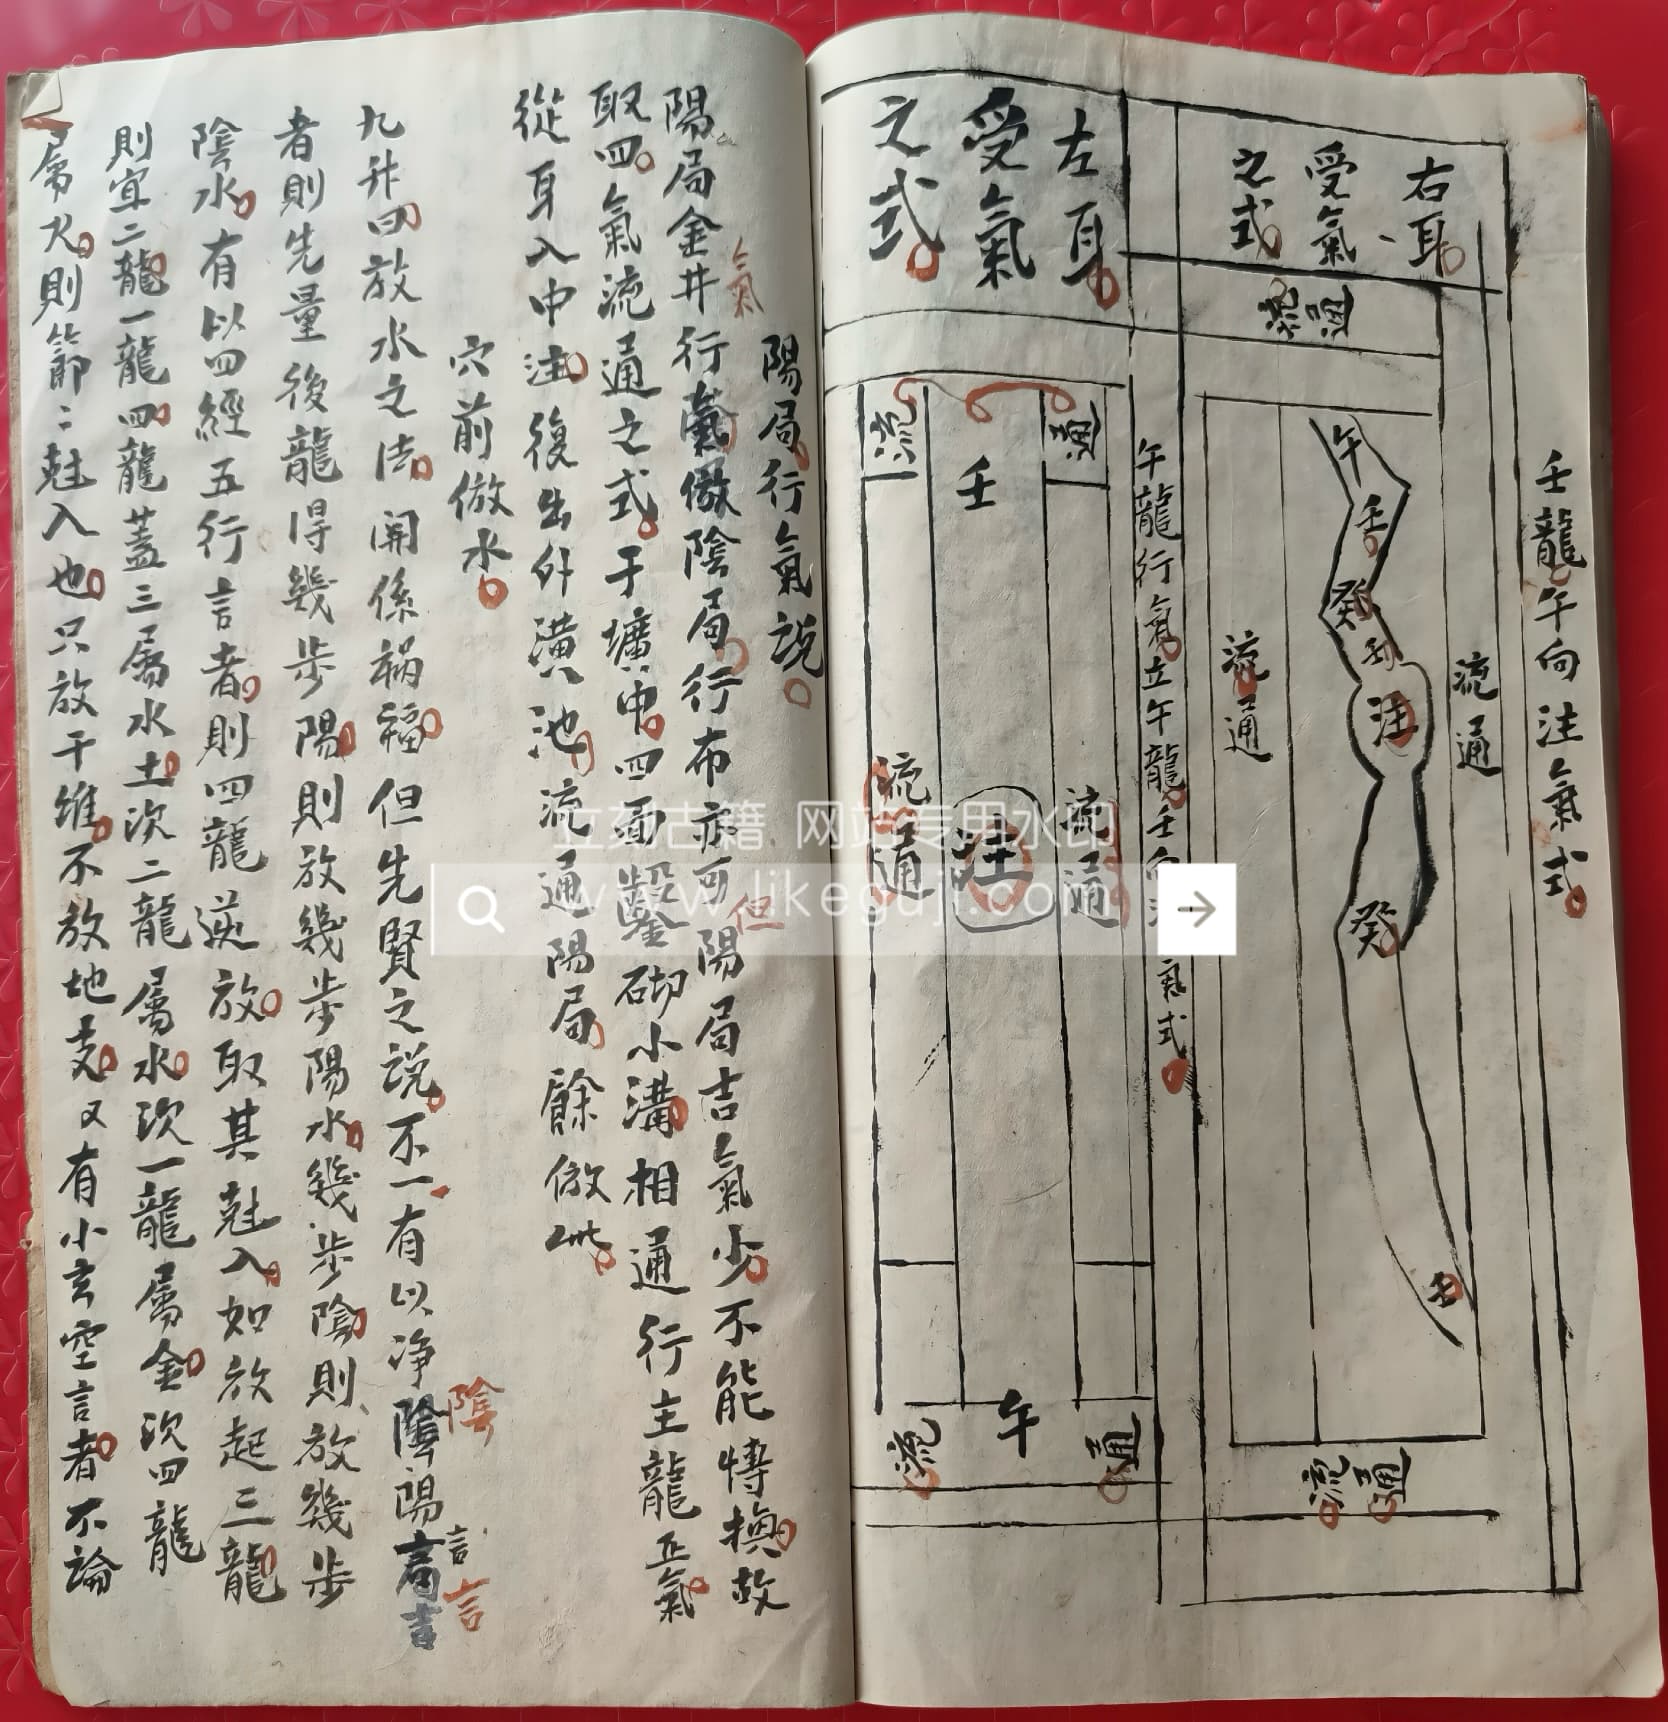 壬龍午向注氣式
右耳
受氣
之式
流通
流通
午
壬
癸
壬
注
癸
壬
流通
流通
午龍行氣立午龍壬向注氣式
左耳
受氣
之式
流
通
壬
流通
注
流通
午
流
通
陽局行氣説
陽局金井行氣倣陰局行布亦可但陽局吉氣少不能轉換故
氣
但
取四氣流通之式于壙中四面鑿砌小溝相通行主龍正氣
從耳入中注復出外潢池流通陽局餘倣此
穴前倣水
九升四放水之法関係禍福但先賢之説不一有以净陰陽言
陰
言
言
者則先量後龍得幾步陽則放幾步陽水幾步陰則放幾步
陰水有以四經五行言者則四龍逆放取其尅入如放起三龍
則宜二龍一龍四龍蓋三屬水土次二龍屬水次一龍屬金次四龍
屬火則節二尅入也只放干維不放地支又有小玄空言者不論
立刻古籍 网站专用水印
www.likeguji.com